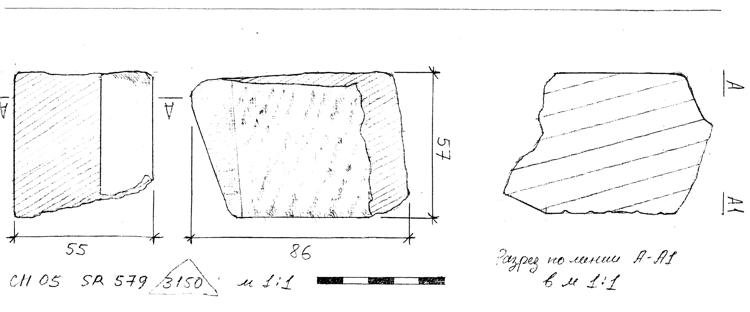 A
A
55
86
57
A
A1
СН 05 SR 579 3150 м 1:1
Разрез по линии А-А1
в м 1:1